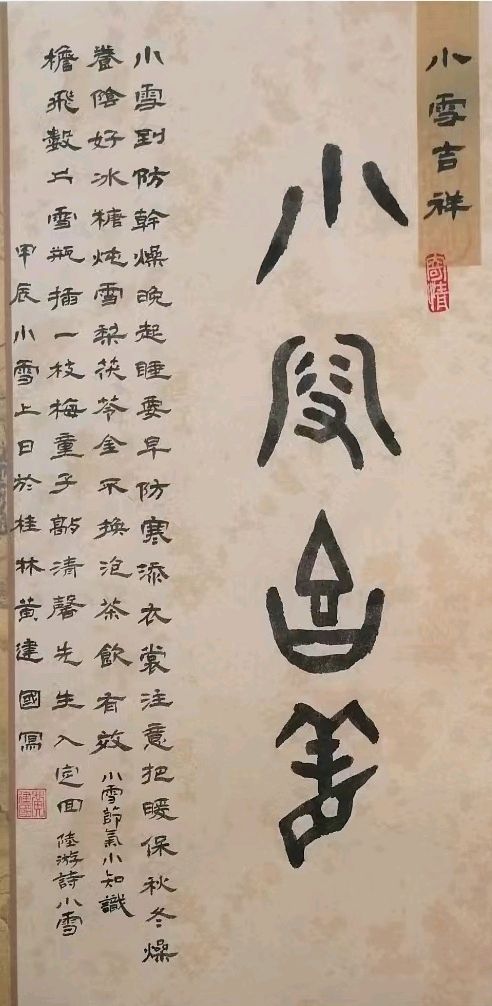 小雪吉祥
寄情
小雪吉祥
小雪到防幹燥晚起睡要早防寒添衣裳注意把暖保秋冬燥
養陰好冰糖炖雪梨茯苓金不換泡茶飲有效 小雪節氣小知識
檐飛數片雪瓶插一枝梅童子敲清馨先生入定回 陸游詩小雪
甲辰小雪上日於桂林黃建國寫